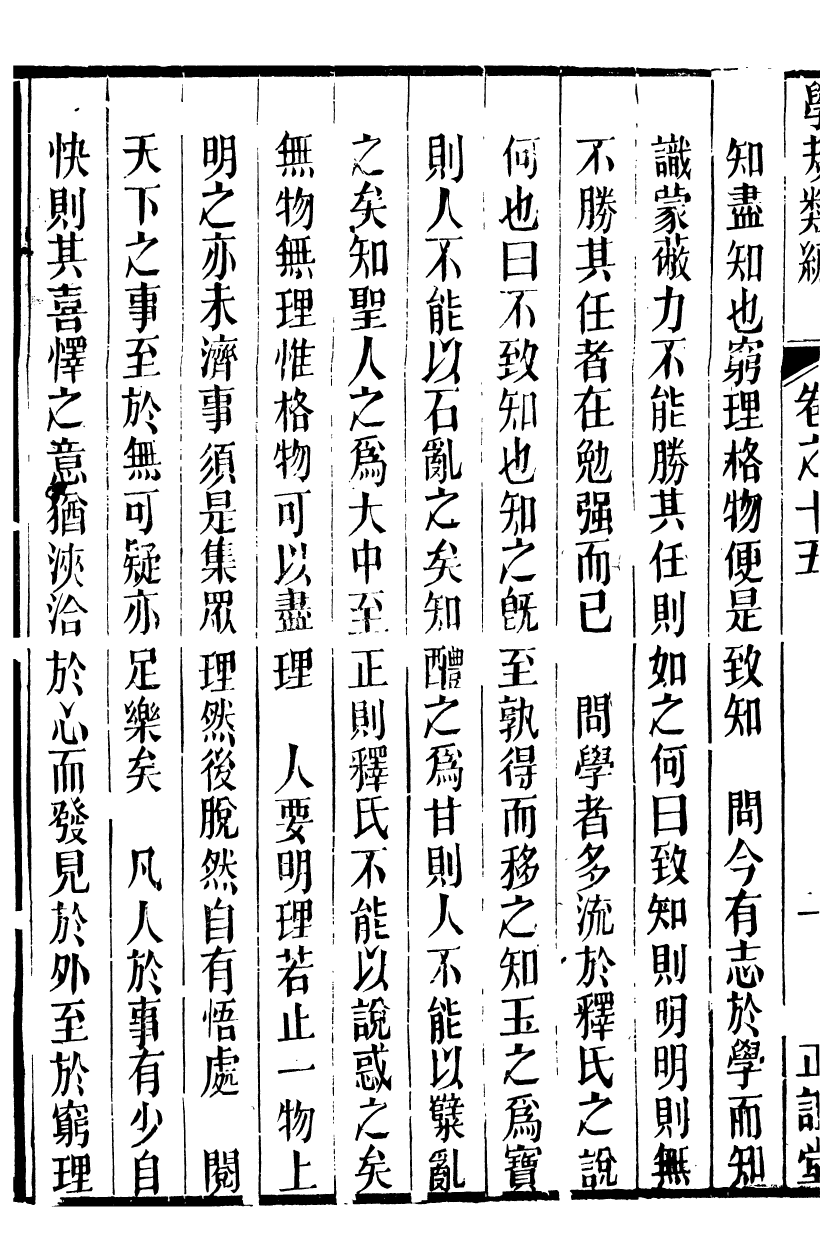 學規類編 卷之十五 一 正誼堂
知盡知也窮理格物便是致知　問今有志於學而知
識蒙蔽力不能勝其任則如之何曰致知則明明則無
不勝其任者在勉强而已　問學者多流於釋氏之說
何也曰不致知也知之旣至孰得而移之知玉之爲寶
則人不能以石亂之矣知醴之爲甘則人不能以糵亂
之矣知聖人之爲大中至正則釋氏不能以說惑之矣
無物無理惟格物可以盡理　人要明理若止一物上
明之亦未濟事須是集眾理然後脫然自有悟處　閱
天下之事至於無可疑亦足樂矣　凡人於事有少自
快則其喜懌之意猶浹洽於心而發見於外至於窮理